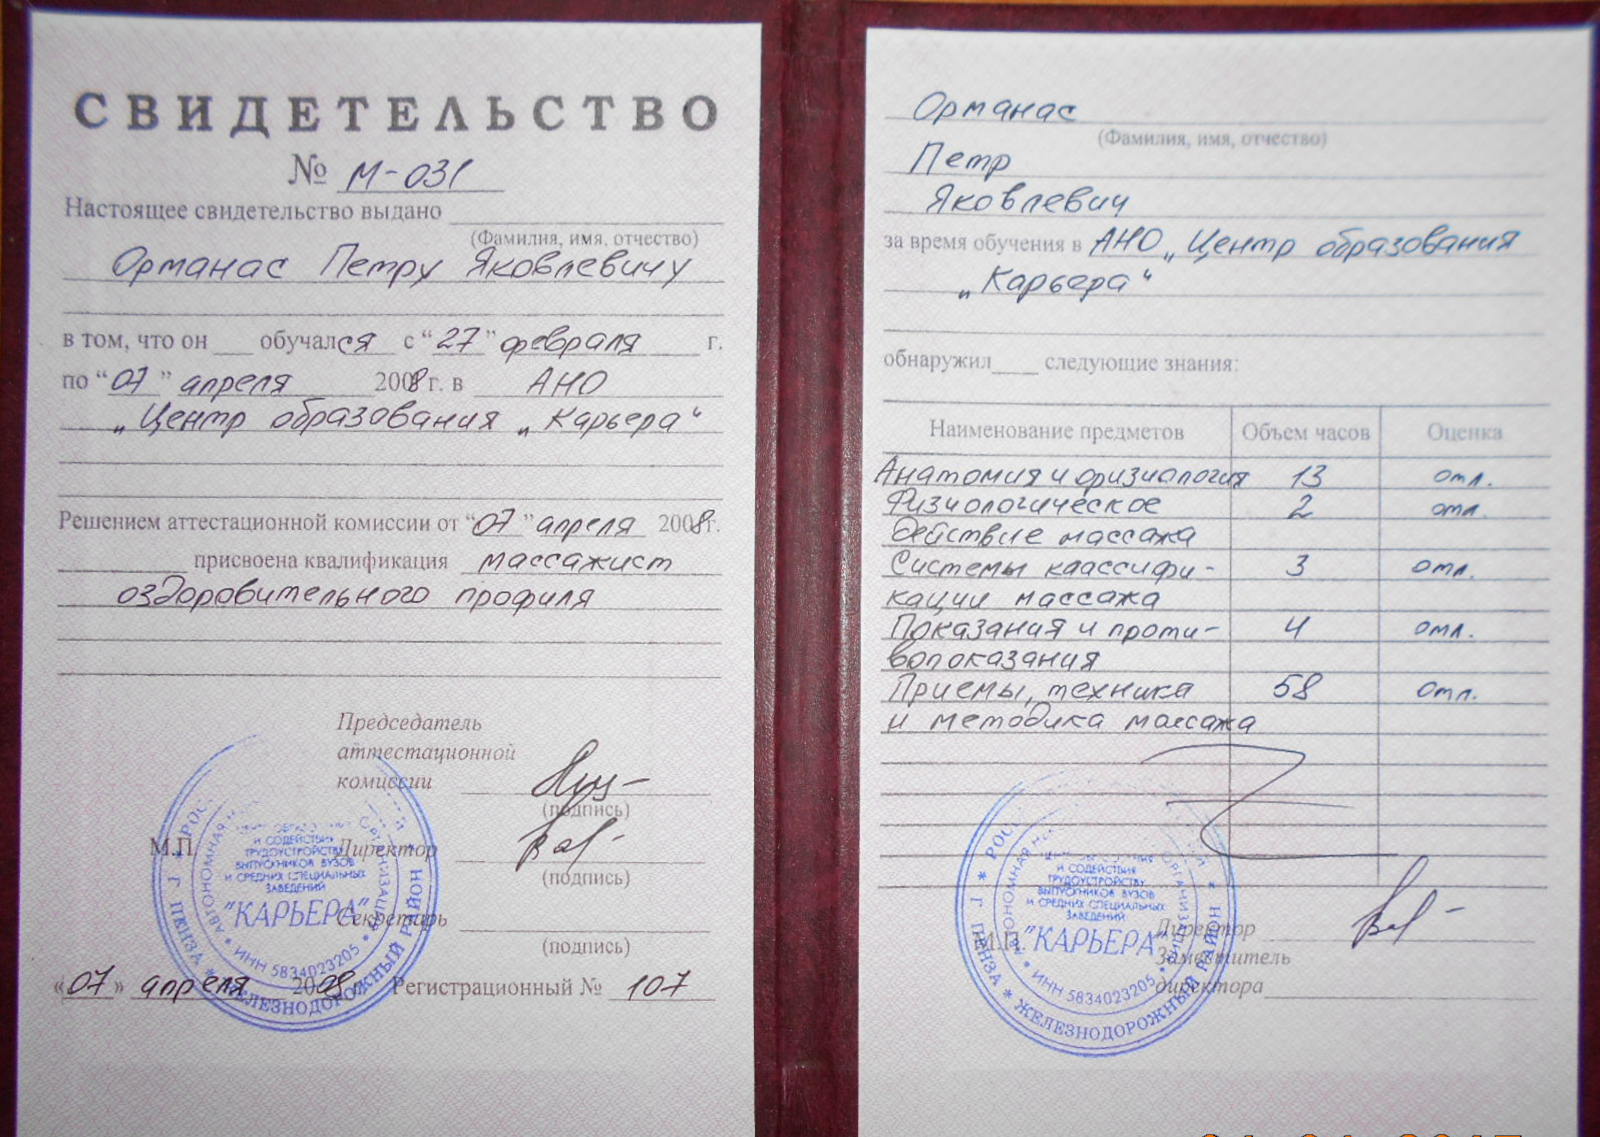 СВИДЕТЕЛЬСТВО
№ М-031
Настоящее свидетельство выдано
(Фамилия, имя, отчество)
Орманас Петру Яковлевичу
в том, что он обучался с “27” февраля г.
по “07” апреля 2008 г. в АНО
„Центр образования „Карьера“
Решением аттестационной комиссии от “07” апреля 2008 г.
присвоена квалификация массажист
оздоровительного профиля
Председатель
аттестационной
комиссии
(подпись)
М.П. Директор
(подпись)
Секретарь
(подпись)
«07» апреля 2008 Регистрационный № 107
И СОДЕЙСТВИЯ
ТРУДОУСТРОЙСТВУ
ВЫПУСКНИКОВ ВУЗОВ
И СРЕДНИХ СПЕЦИАЛЬНЫХ
ЗАВЕДЕНИЙ
"КАРЬЕРА"
ИНН 5834023205
Г. ПЕНЗА * ЖЕЛЕЗНОДОРОЖНЫЙ РАЙОН
Орманас
(Фамилия, имя, отчество)
Петр
Яковлевич
за время обучения в АНО „Центр образования
„Карьера“
обнаружил следующие знания:
Наименование предметов Объем часов Оценка
Анатомия и физиология 13 отл.
Физиологическое 2 отл.
действие массажа
Системы классифи- 3 отл.
кации массажа
Показания и проти- 4 отл.
вопоказания
Приемы, техника 58 отл.
и методика массажа
Директор
М.П.
Заместитель
директора
И СОДЕЙСТВИЯ
ТРУДОУСТРОЙСТВУ
ВЫПУСКНИКОВ ВУЗОВ
И СРЕДНИХ СПЕЦИАЛЬНЫХ
ЗАВЕДЕНИЙ
"КАРЬЕРА"
ИНН 5834023205
Г. ПЕНЗА * ЖЕЛЕЗНОДОРОЖНЫЙ РАЙОН